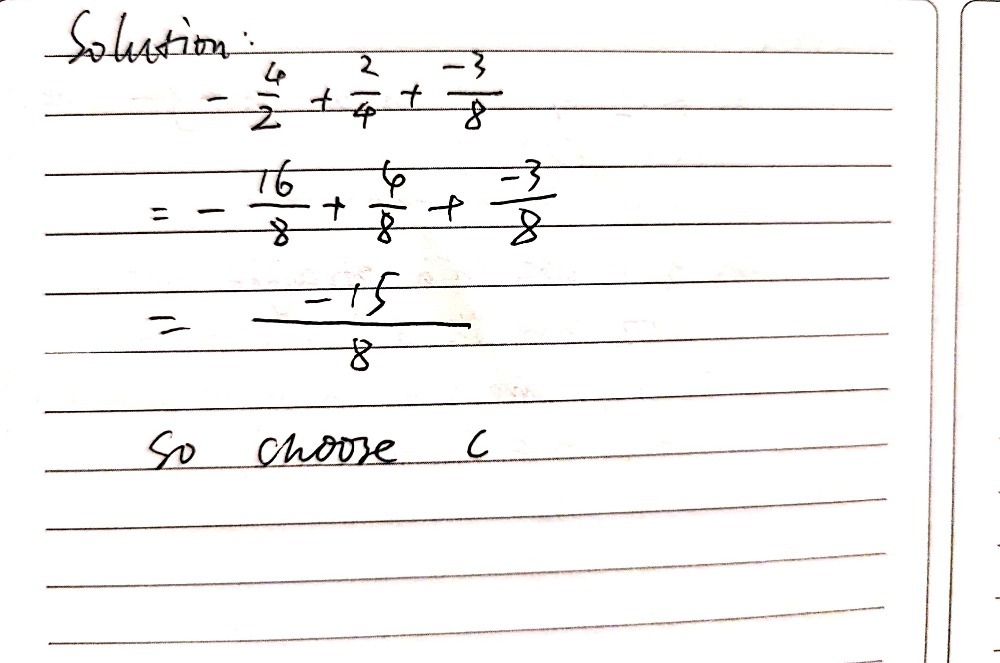 Solution:
- 4/2 + 2/4 + -3/8
= - 16/8 + 4/8 + -3/8
= -15/8
So choose C